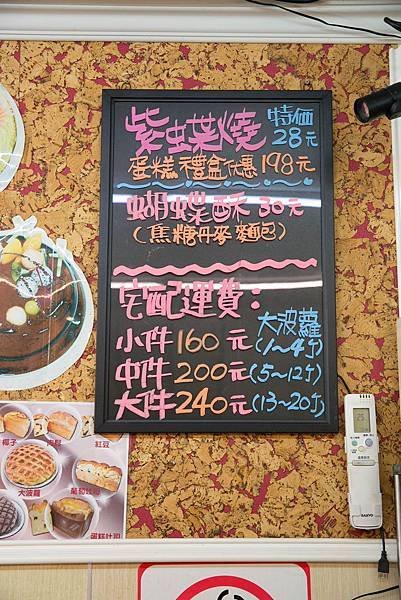 紫蝶燒 特価 28元
蛋糕禮盒優惠198元
蝴蝶酥30元
(焦糖丹麥麵包)
宅配運費:
大波蘿
小件160元(1~4个)
中件200元(5~12个)
大件240元(13~20个)
椰子
肉鬆
紅豆
大菠蘿
葡萄吐司
蛋糕吐司
SANYO